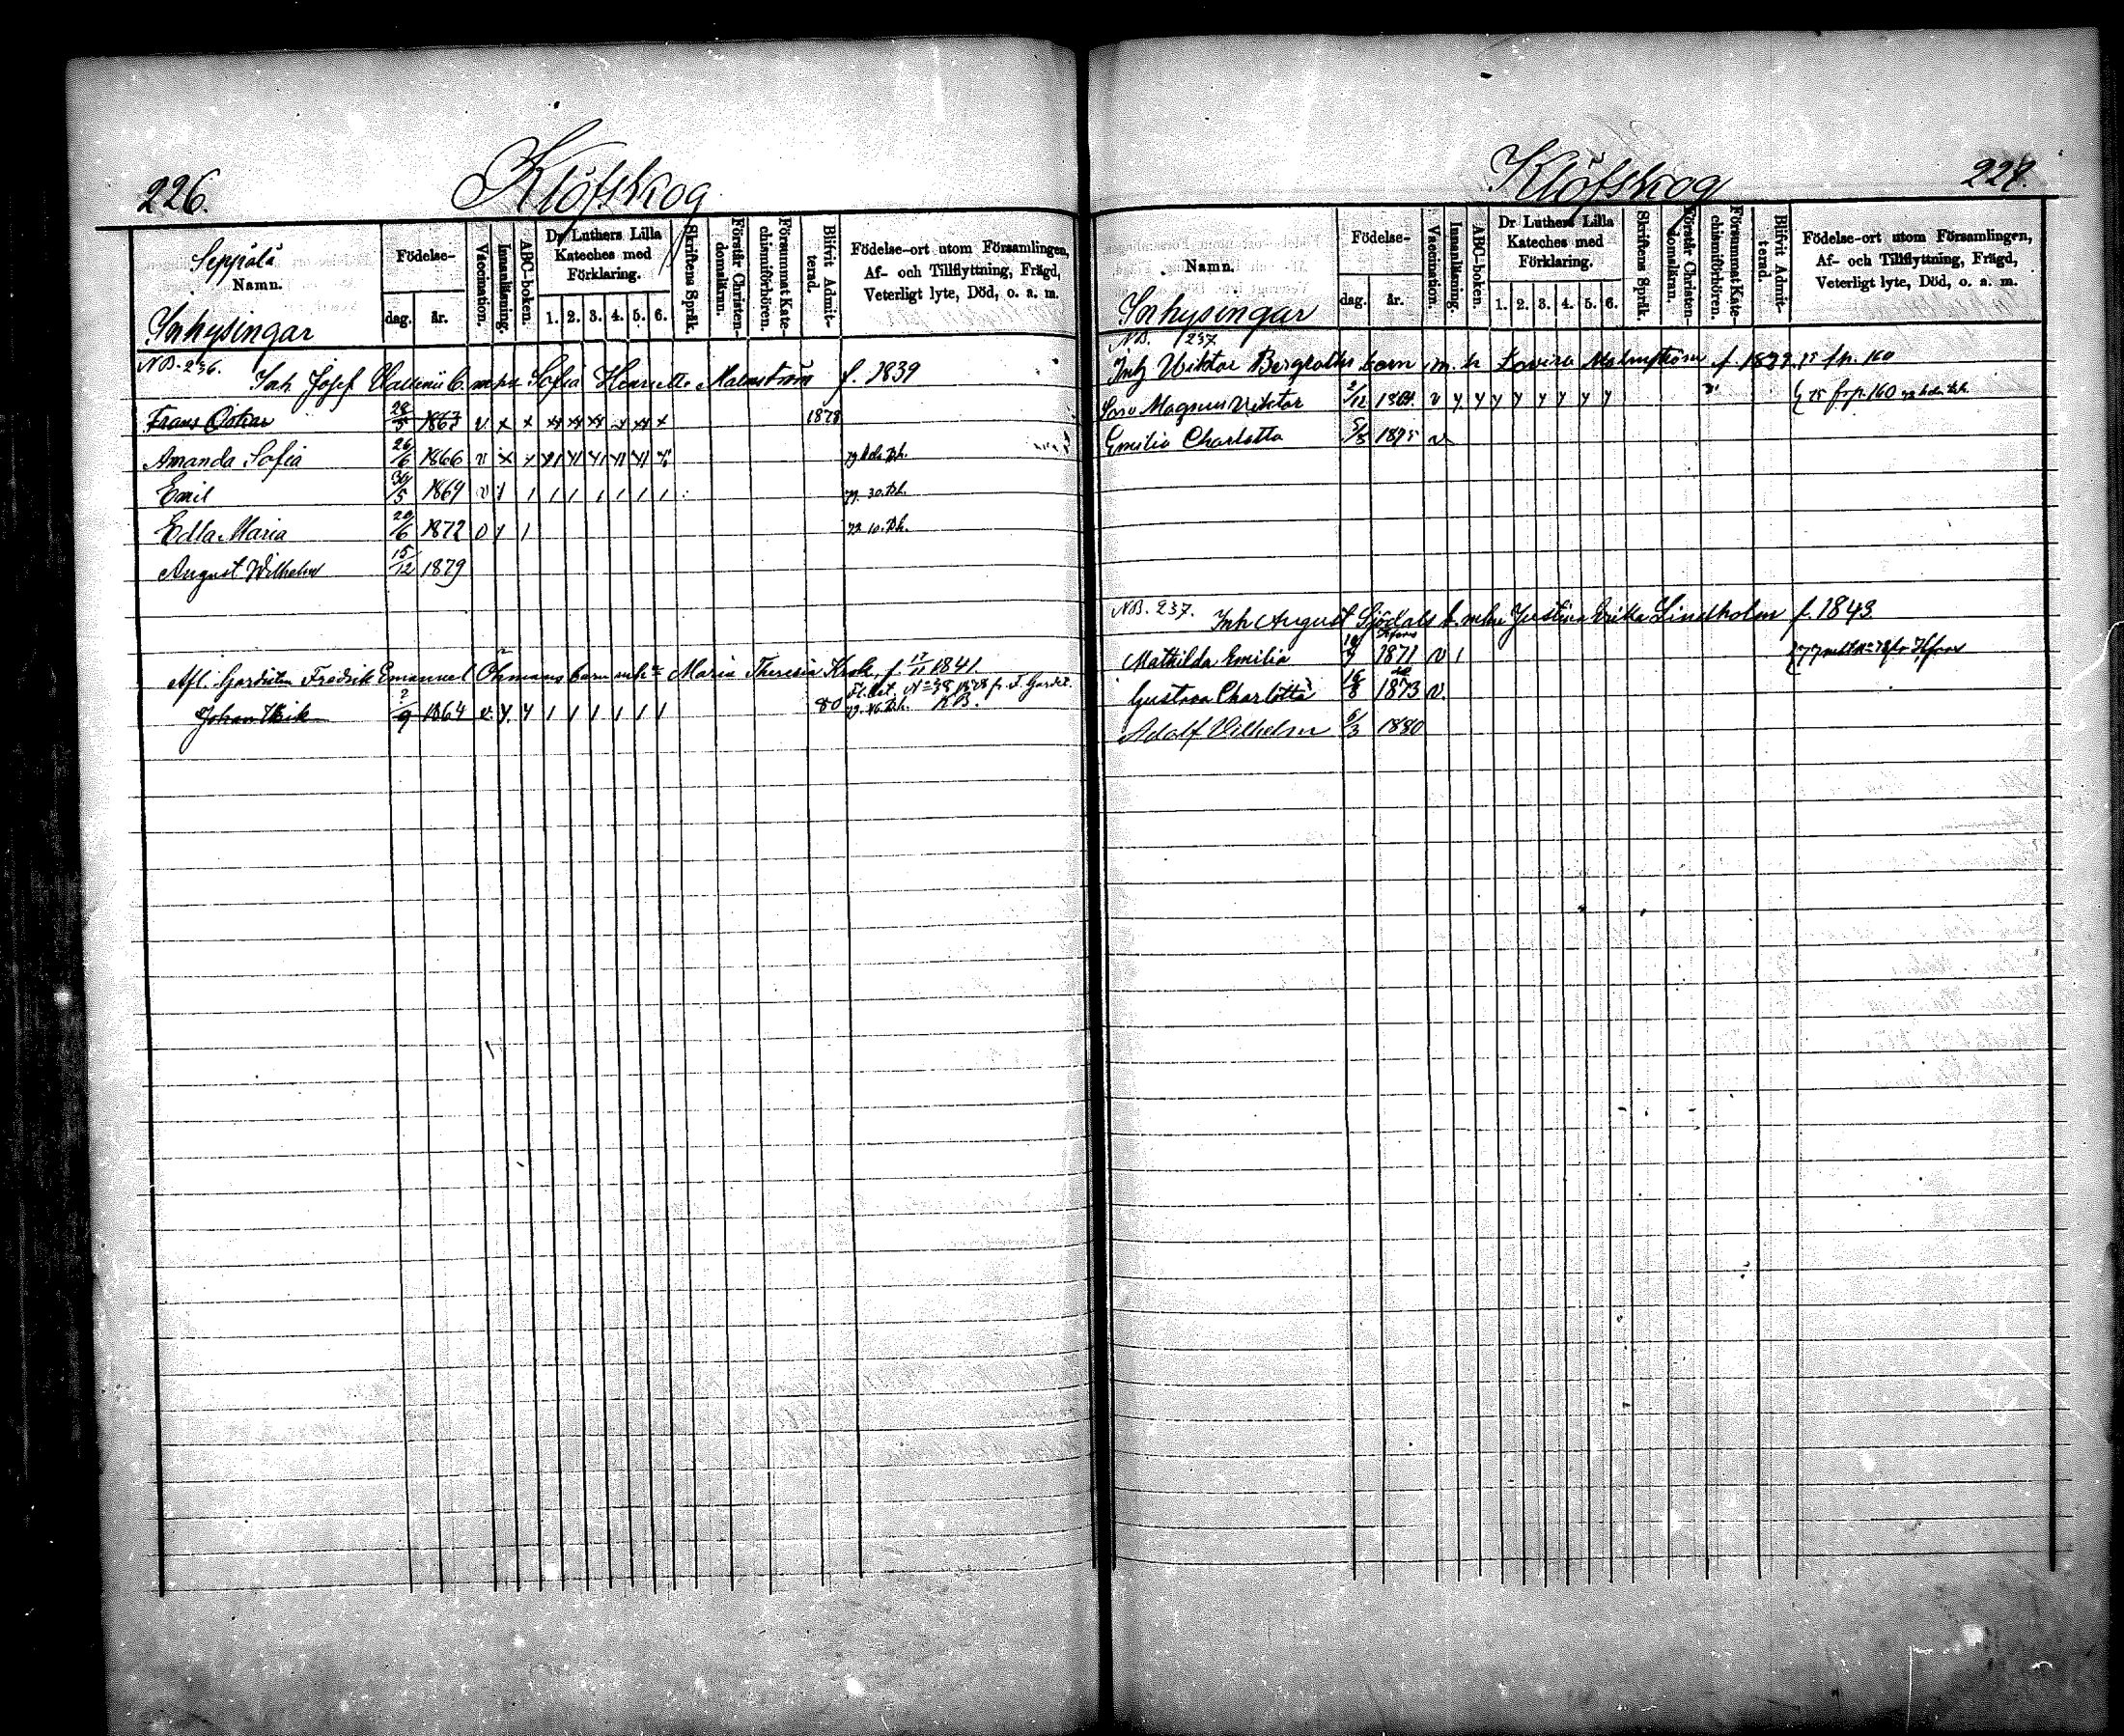 226.
Klöfskog
Seppälä
Namn.
Inhysingar
Födelse-
dag.
år.
Vaccination.
Innanläsning.
ABC-boken.
Dr Luthers Lilla
Kateches med
Förklaring.
1. 2. 3. 4. 5. 6.
Skriftens Språk.
Förstår Christen-
domsläran.
Försummat Kate-
chismiförhören.
Blifvit Admit-
terad.
Födelse-ort utom Församlingen,
Af- och Tillflyttning, Frägd,
Veterligt lyte, Död, o. a. m.
NB. 236.
Inh Josef Vallenii b. m hu Sofia Henriette Malmström f. 1839
Frans Oskar 28/5 1863 v x x x x x x x x 1878
Amanda Sofia 26/6 1866 v x x 79 hela Bh.
Emil 30/5 1869 v 79. 30. Bh.
Edla Maria 20/6 1872 v 79 10. Bh.
August Wilhelm 15/12 1879
Afl. Gardisten Fredrik Emanuel Öhmans barn m h Maria Theresia Krok, f. 17/11 1841.
Fl. bet. No 38 1878 fr. F. Gardet.
Johan Erik 2/9 1864 v. y. y 1 1 1 1 1 1 80 79. 46. Bh. KB.
Klöfskog
227.
Namn.
Inhysingar
Födelse-
dag.
år.
Vaccination.
Innanläsning.
ABC-boken.
Dr Luthers Lilla
Kateches med
Förklaring.
1. 2. 3. 4. 5. 6.
Skriftens Språk.
Förstår Christen-
domsläran.
Försummat Kate-
chismiförhören.
Blifvit Admit-
terad.
Födelse-ort utom Församlingen,
Af- och Tillflyttning, Frägd,
Veterligt lyte, Död, o. a. m.
NB. 237
Inh Viktor Bergroths barn m. h Lovisa Malmström f. 75 fr p. 160
Magnus Viktor 2/12 v y y y y y y y y 75 fr p. 160 79 hela Bh.
Emilia Charlotta 5/5 1875 v
NB. 237. Inh August Sjödals b. m hu Justina Erika Lindholm f. 1843
Mathilda Emilia 1871 v 1
Gustava Charlotta 16/8 1873 v.
Adolf Vilhelm 6/3 1880